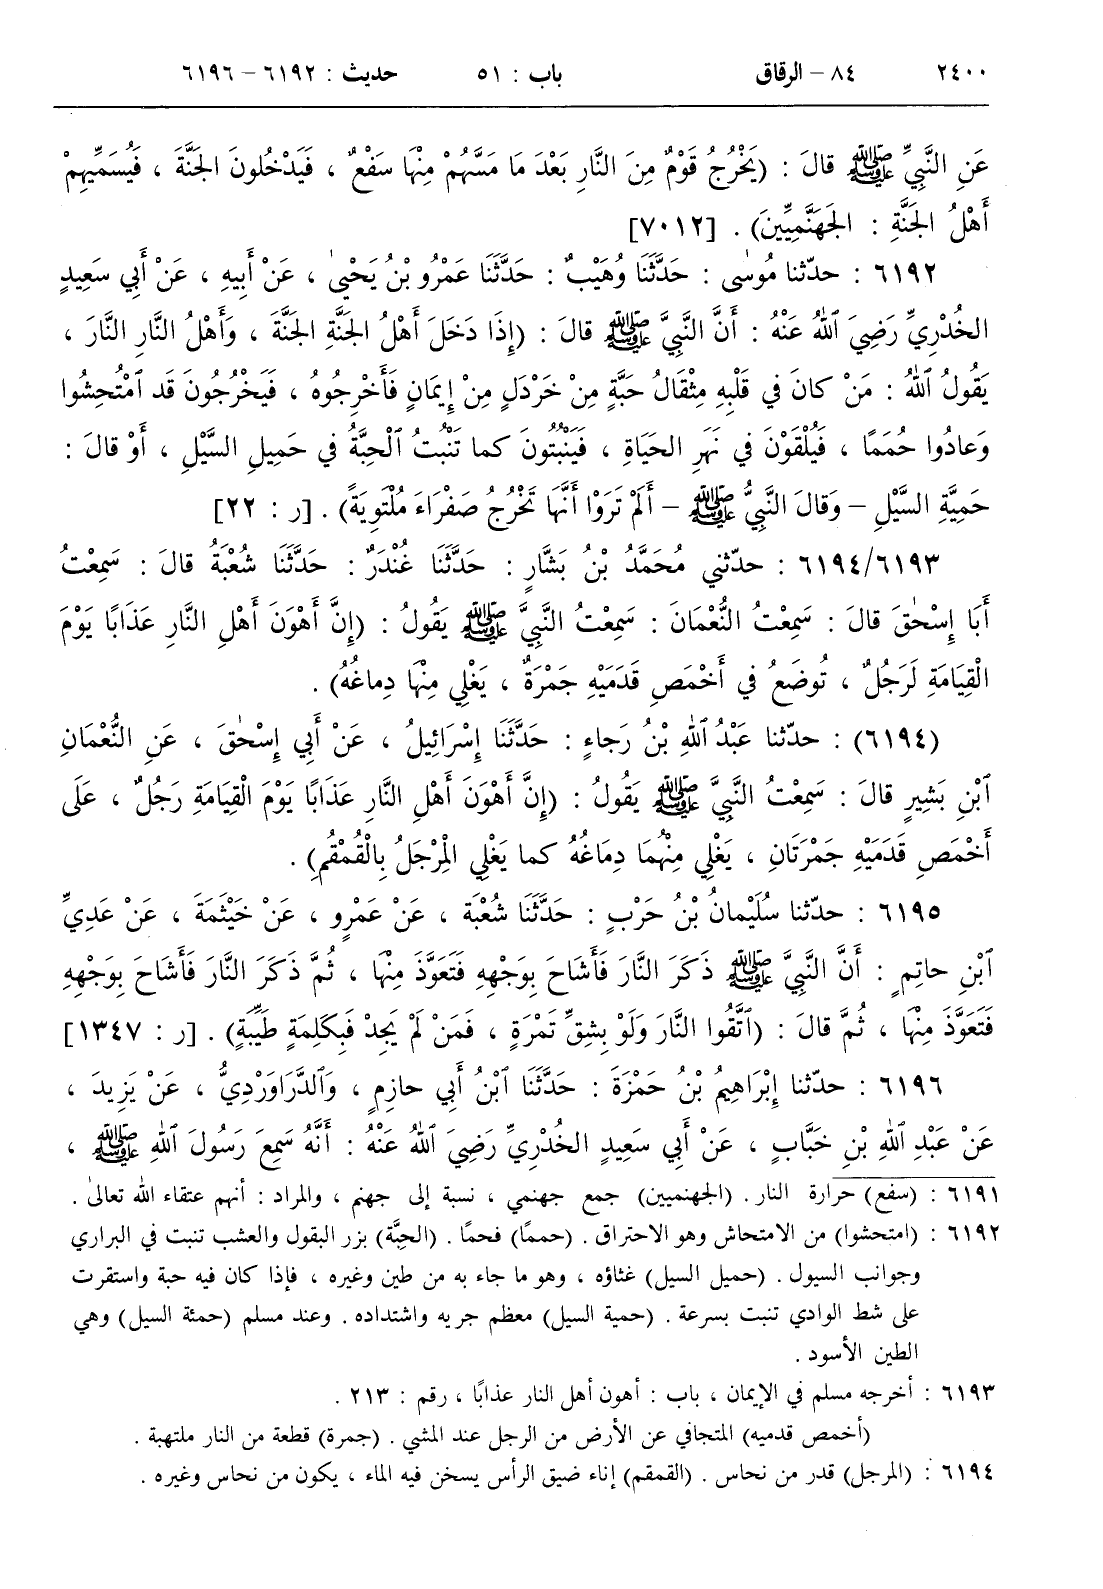 ٢٤٠٠ ٨٤ – الرقاق باب : ٥١ حديث : ٦١٩٢ – ٦١٩٦
عَنِ النَّبِيِّ ﷺ قالَ : (يَخْرُجُ قَوْمٌ مِنَ النَّارِ بَعْدَ ما مَسَّهُمْ مِنْهَا سَفْعٌ ، فَيَدْخُلونَ الجَنَّةَ ، فَيُسَمِّيهِمْ
أَهْلُ الجَنَّةِ : الجَهَنَّمِيِّينَ) . [٧٠١٢]
٦١٩٢ : حدّثنا مُوسٰى : حَدَّثَنَا وُهَيْبٌ : حَدَّثَنَا عَمْرُو بْنُ يَحْيىٰ ، عَنْ أَبِيهِ ، عَنْ أَبِي سَعِيدٍ
الخُدْرِيِّ رَضِيَ ٱللهُ عَنْهُ : أَنَّ النَّبِيَّ ﷺ قالَ : (إِذَا دَخَلَ أَهْلُ الجَنَّةِ الجَنَّةَ ، وَأَهْلُ النَّارِ النَّارَ ،
يَقُولُ ٱللهُ : مَنْ كانَ في قَلْبِهِ مِثْقَالُ حَبَّةٍ مِنْ خَرْدَلٍ مِنْ إِيمَانٍ فَأَخْرِجُوهُ ، فَيَخْرُجُونَ قَد ٱمْتُحِشُوا
وَعادُوا حُمَمًا ، فَيُلْقَوْنَ في نَهَرِ الحَيَاةِ ، فَيَنْبُتُونَ كما تَنْبُتُ ٱلْحِبَّةُ في حَمِيلِ السَّيْلِ ، أَوْ قالَ :
حَمِيَّةِ السَّيْلِ – وَقالَ النَّبِيُّ ﷺ – أَلَمْ تَرَوْا أَنَّهَا تَخْرُجُ صَفْرَاءَ مُلْتَوِيَةً) . [ر : ٢٢]
٦١٩٤/٦١٩٣ : حدّثني مُحَمَّدُ بْنُ بَشَّارٍ : حَدَّثَنَا غُنْدَرٌ : حَدَّثَنَا شُعْبَةُ قالَ : سَمِعْتُ
أَبَا إِسْحٰقَ قالَ : سَمِعْتُ النُّعْمَانَ : سَمِعْتُ النَّبِيَّ ﷺ يَقُولُ : (إِنَّ أَهْوَنَ أَهْلِ النَّارِ عَذَابًا يَوْمَ
الْقِيَامَةِ لَرَجُلٌ ، تُوضَعُ في أَخْمَصِ قَدَمَيْهِ جَمْرَةٌ ، يَغْلِي مِنْهَا دِماغُهُ) .
(٦١٩٤) : حدّثنا عَبْدُ ٱللهِ بْنُ رَجاءٍ : حَدَّثَنَا إِسْرَائِيلُ ، عَنْ أَبِي إِسْحٰقَ ، عَنِ النُّعْمَانِ
ٱبْنِ بَشِيرٍ قالَ : سَمِعْتُ النَّبِيَّ ﷺ يَقُولُ : (إِنَّ أَهْوَنَ أَهْلِ النَّارِ عَذَابًا يَوْمَ الْقِيَامَةِ رَجُلٌ ، عَلَى
أَخْمَصِ قَدَمَيْهِ جَمْرَتَانِ ، يَغْلِي مِنْهُمَا دِمَاغُهُ كما يَغْلِي الْمِرْجَلُ بِالْقُمْقُمِ) .
٦١٩٥ : حدّثنا سُلَيْمانُ بْنُ حَرْبٍ : حَدَّثَنَا شُعْبَةُ ، عَنْ عَمْرٍو ، عَنْ خَيْثَمَةَ ، عَنْ عَدِيِّ
ٱبْنِ حاتِمٍ : أَنَّ النَّبِيَّ ﷺ ذَكَرَ النَّارَ فَأَشَاحَ بِوَجْهِهِ فَتَعَوَّذَ مِنْهَا ، ثُمَّ ذَكَرَ النَّارَ فَأَشَاحَ بِوَجْهِهِ
فَتَعَوَّذَ مِنْهَا ، ثُمَّ قالَ : (ٱتَّقُوا النَّارَ وَلَوْ بِشِقِّ تَمْرَةٍ ، فَمَنْ لَمْ يَجِدْ فَبِكَلِمَةٍ طَيِّبَةٍ) . [ر : ١٣٤٧]
٦١٩٦ : حدّثنا إِبْرَاهِيمُ بْنُ حَمْزَةَ : حَدَّثَنَا ٱبْنُ أَبِي حازِمٍ ، وَٱلدَّرَاوَرْدِيُّ ، عَنْ يَزِيدَ ،
عَنْ عَبْدِ ٱللهِ بْنِ خَبَّابٍ ، عَنْ أَبِي سَعِيدٍ الخُدْرِيِّ رَضِيَ ٱللهُ عَنْهُ : أَنَّهُ سَمِعَ رَسُولَ ٱللهِ ﷺ ،
٦١٩١ : (سفع) حرارة النار . (الجهنميين) جمع جهنمي ، نسبة إلى جهنم ، والمراد : أنهم عتقاء الله تعالىٰ .
٦١٩٢ : (امتحشوا) من الامتحاش وهو الاحتراق . (حممًا) فحمًا . (الحِبَّة) بزر البقول والعشب تنبت في البراري
وجوانب السيول . (حميل السيل) غثاؤه ، وهو ما جاء به من طين وغيره ، فإذا كان فيه حبة واستقرت
على شط الوادي تنبت بسرعة . (حمية السيل) معظم جريه واشتداده . وعند مسلم (حمئة السيل) وهي
الطين الأسود .
٦١٩٣ : أخرجه مسلم في الإيمان ، باب : أهون أهل النار عذابًا ، رقم : ٢١٣ .
(أخمص قدميه) المتجافي عن الأرض من الرجل عند المشي . (جمرة) قطعة من النار ملتهبة .
٦١٩٤ : (المرجل) قدر من نحاس . (القمقم) إناء ضيق الرأس يسخن فيه الماء ، يكون من نحاس وغيره .